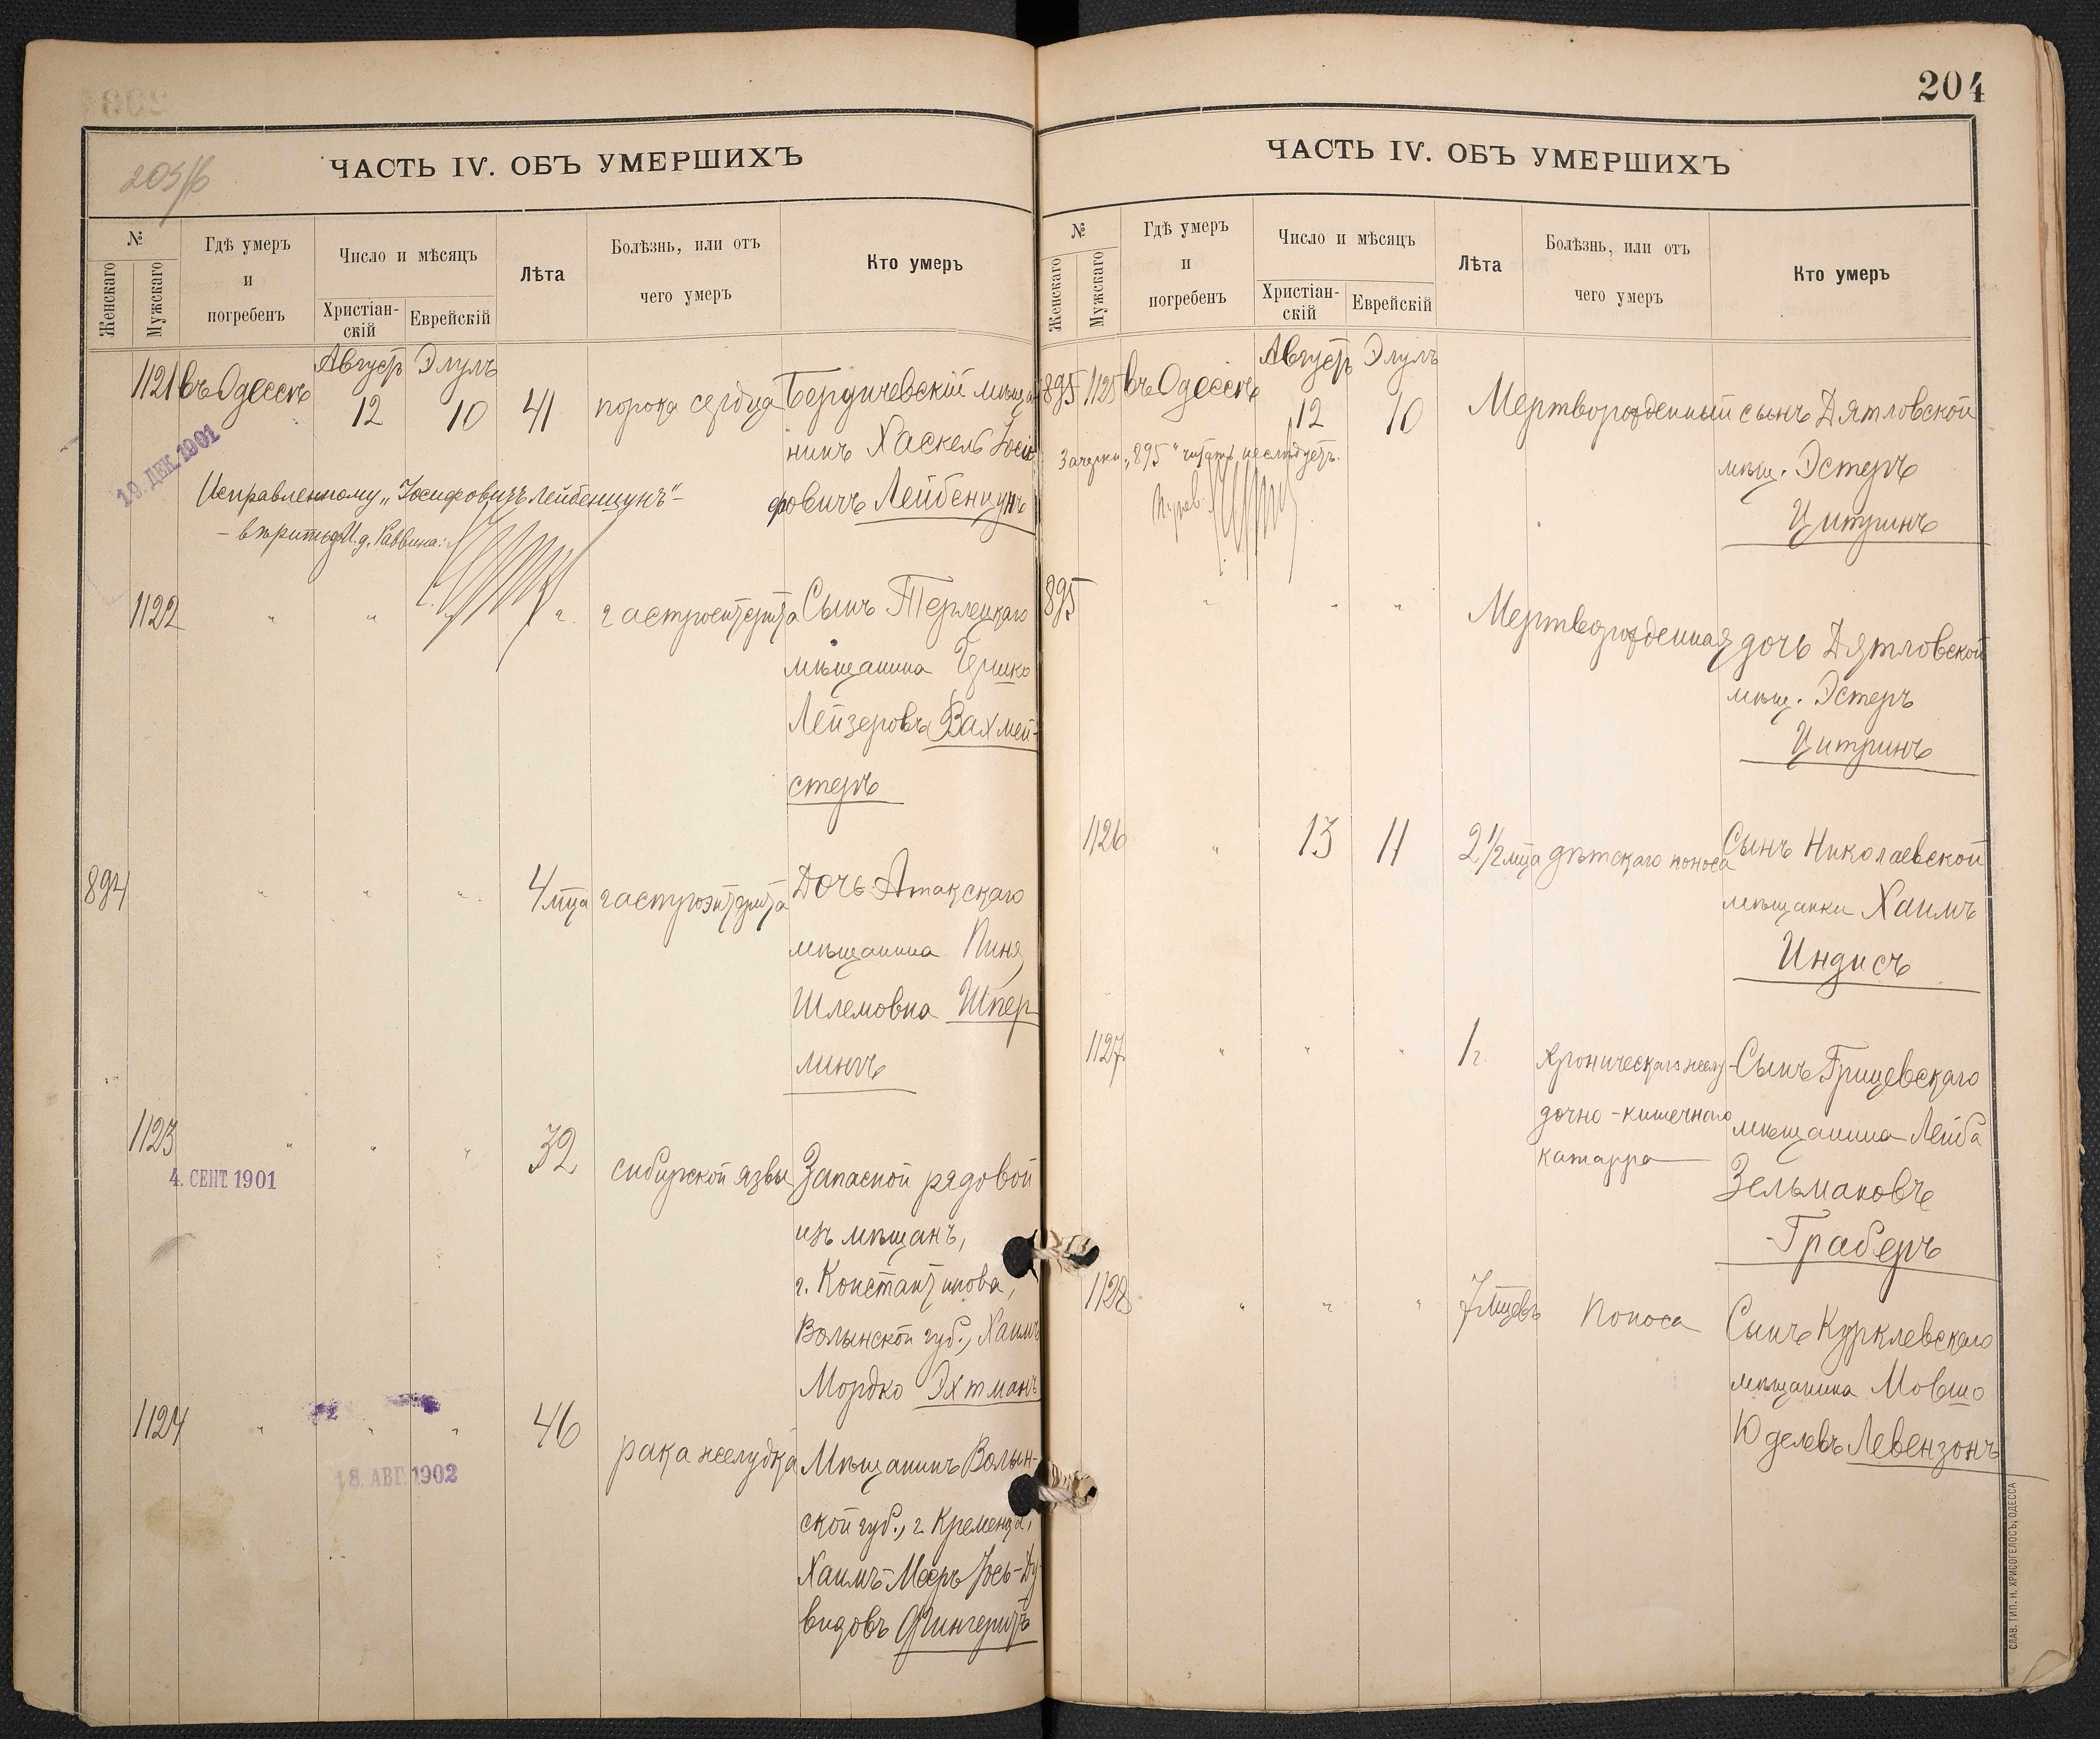 203/б
ЧАСТЬ IV. ОБЪ УМЕРШИХЪ
№
Женскаго
Мужскаго
Гдѣ умеръ
и
погребенъ
Число и мѣсяцъ
Христіан-
скій
Еврейскій
Лѣта
Болѣзнь, или отъ
чего умеръ
Кто умеръ
Августъ Элулъ
1121 въ Одессѣ 12 10 41 порока сердца Бердичевскій мѣща
нинъ Хаскель Іоси
фовичъ Лейбенцунъ
19. ДЕК. 1901
Исправленному „Іосифовичъ Лейбенцунъ“ –
– вѣрить. И. д. Раввина:
1122 " " " " гастроентерита Сынъ Терлецкаго
мѣщанина Гершко
Лейзеровъ Вахмей-
стеръ
894 " " " 4 мца гастроэнтерита Дочь Атакскаго
мѣщанина Пиня
Шлемовна Шпер
лингъ
1123 " " " 32 сибирской язвы Запасной рядовой
4. СЕНТ. 1901
изъ мѣщанъ,
г. Константинова,
Волынской губ., Хаимъ
Мордко Эхтманъ
1124 " " " 46 рака желудка Мѣщанинъ Волын-
18. АВГ. 1902
ской губ., г. Кременца,
Хаимъ-Меер Іось-Ду
видовъ Фингеритъ
204
ЧАСТЬ IV. ОБЪ УМЕРШИХЪ
№
Женскаго
Мужскаго
Гдѣ умеръ
и
погребенъ
Число и мѣсяцъ
Христіан-
скій
Еврейскій
Лѣта
Болѣзнь, или отъ
чего умеръ
Кто умеръ
Августъ Элулъ
895 1125 въ Одессѣ 12 10 Мертворожденный сынъ Дятловской
мѣщ. Эстеръ
Цитринъ
Зачеркн. „895“ читать не слѣдуетъ.
895 " " " Мертворожденная дочь Дятловской
мѣщ. Эстеръ
Цитринъ
1126 " 13 11 2 1/2 мца дѣтскаго поноса Сынъ Николаевской
мѣщанки Хаимъ
Индисъ
1127 " " " 1 г. Хроническаго желу- Сынъ Грицевскаго
дочно-кишечнаго мѣщанина Лейба
катарра Зельмановъ
Граберъ
1128 " " " 7 мцевъ Поноса Сынъ Курклевскаго
мѣщанина Мовшо
Юделевъ Левензонъ
СЛАВ. ТИП. Н. ХРИСОГЕЛОСЪ, ОДЕССА